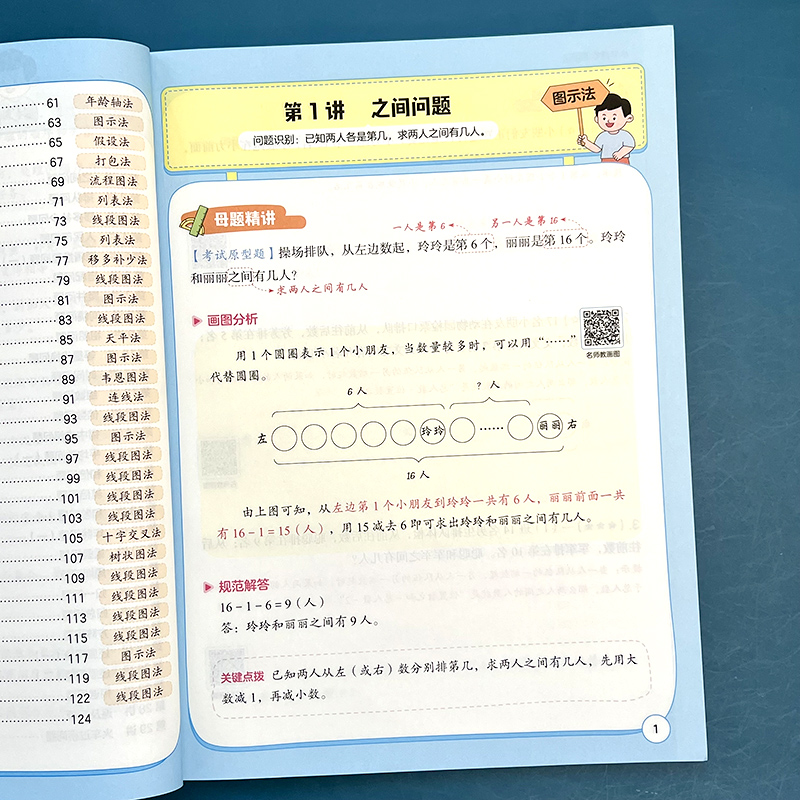 61 年龄轴法
63 图示法
65 假设法
67 打包法
69 流程图法
71 列表法
73 线段图法
75 列表法
77 移多补少法
79 线段图法
81 图示法
83 线段图法
85 天平法
87 图示法
89 韦恩图法
91 连线法
93 线段图法
95 图示法
97 线段图法
99 线段图法
101 线段图法
103 线段图法
105 十字交叉法
107 树状图法
109 线段图法
111 线段图法
113 线段图法
115 线段图法
117 图示法
119 线段图法
122 线段图法
124
第1讲 之间问题
图示法
问题识别：已知两人各是第几，求两人之间有几人。
母题精讲
一人是第6 另一人是第16
【考试原型题】操场排队，从左边数起，玲玲是第6个，丽丽是第16个。玲玲
和丽丽之间有几人？
求两人之间有几人
画图分析
用1个圆圈表示1个小朋友，当数量较多时，可以用“……”
代替圆圈。
名师教画图
6人 ？人
左 玲玲 …… 丽丽 右
16人
由上图可知，从左边第1个小朋友到玲玲一共有6人，丽丽前面一共
有16-1=15（人），用15减去6即可求出玲玲和丽丽之间有几人。
规范解答
16-1-6=9（人）
答：玲玲和丽丽之间有9人。
关键点拨 已知两人从左（或右）数分别排第几，求两人之间有几人，先用大
数减1，再减小数。
1